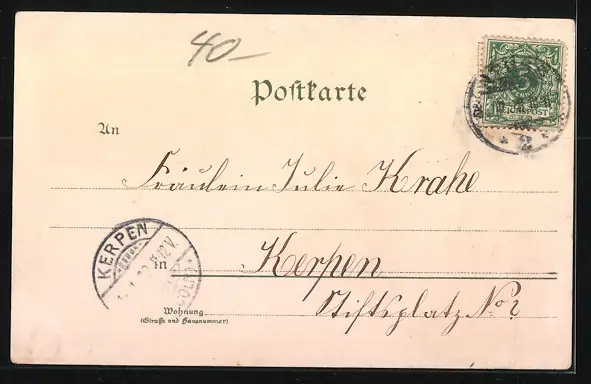 40-
Postkarte
An
Fräulein Julie Krahe
in Kerpen
Wohnung
(Straße und Hausnummer)
Stiftsplatz No 2
KERPEN
REICHSPOST
5
2